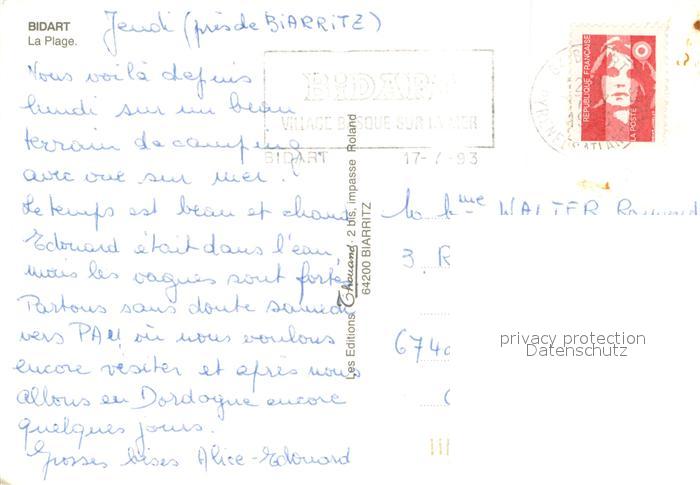 BIDART
La Plage.
Jeudi (près de BiARRiTZ)
Nous voilà depuis
lundi sur un beau
terrain de camping
avec vue sur mer.
Le temps est beau et chaud
Edouard était dans l'eau,
mais les vagues sont fortes
Partons sans doute samedi
vers PAU où nous voulons
encore visiter et après nous
allons en Dordogne encore
quelques jours.
Grosses bises Alice-Edouard
BiDART
VILLAGE BASQUE SUR LA MER
BIDART 17-7-93
RÉPUBLIQUE FRANÇAISE
LA POSTE
Les Editions Thouand - 2 bis, impasse Roland
64200 BIARRITZ
Mr Mme WALTER
3. R
674
privacy protection
Datenschutz